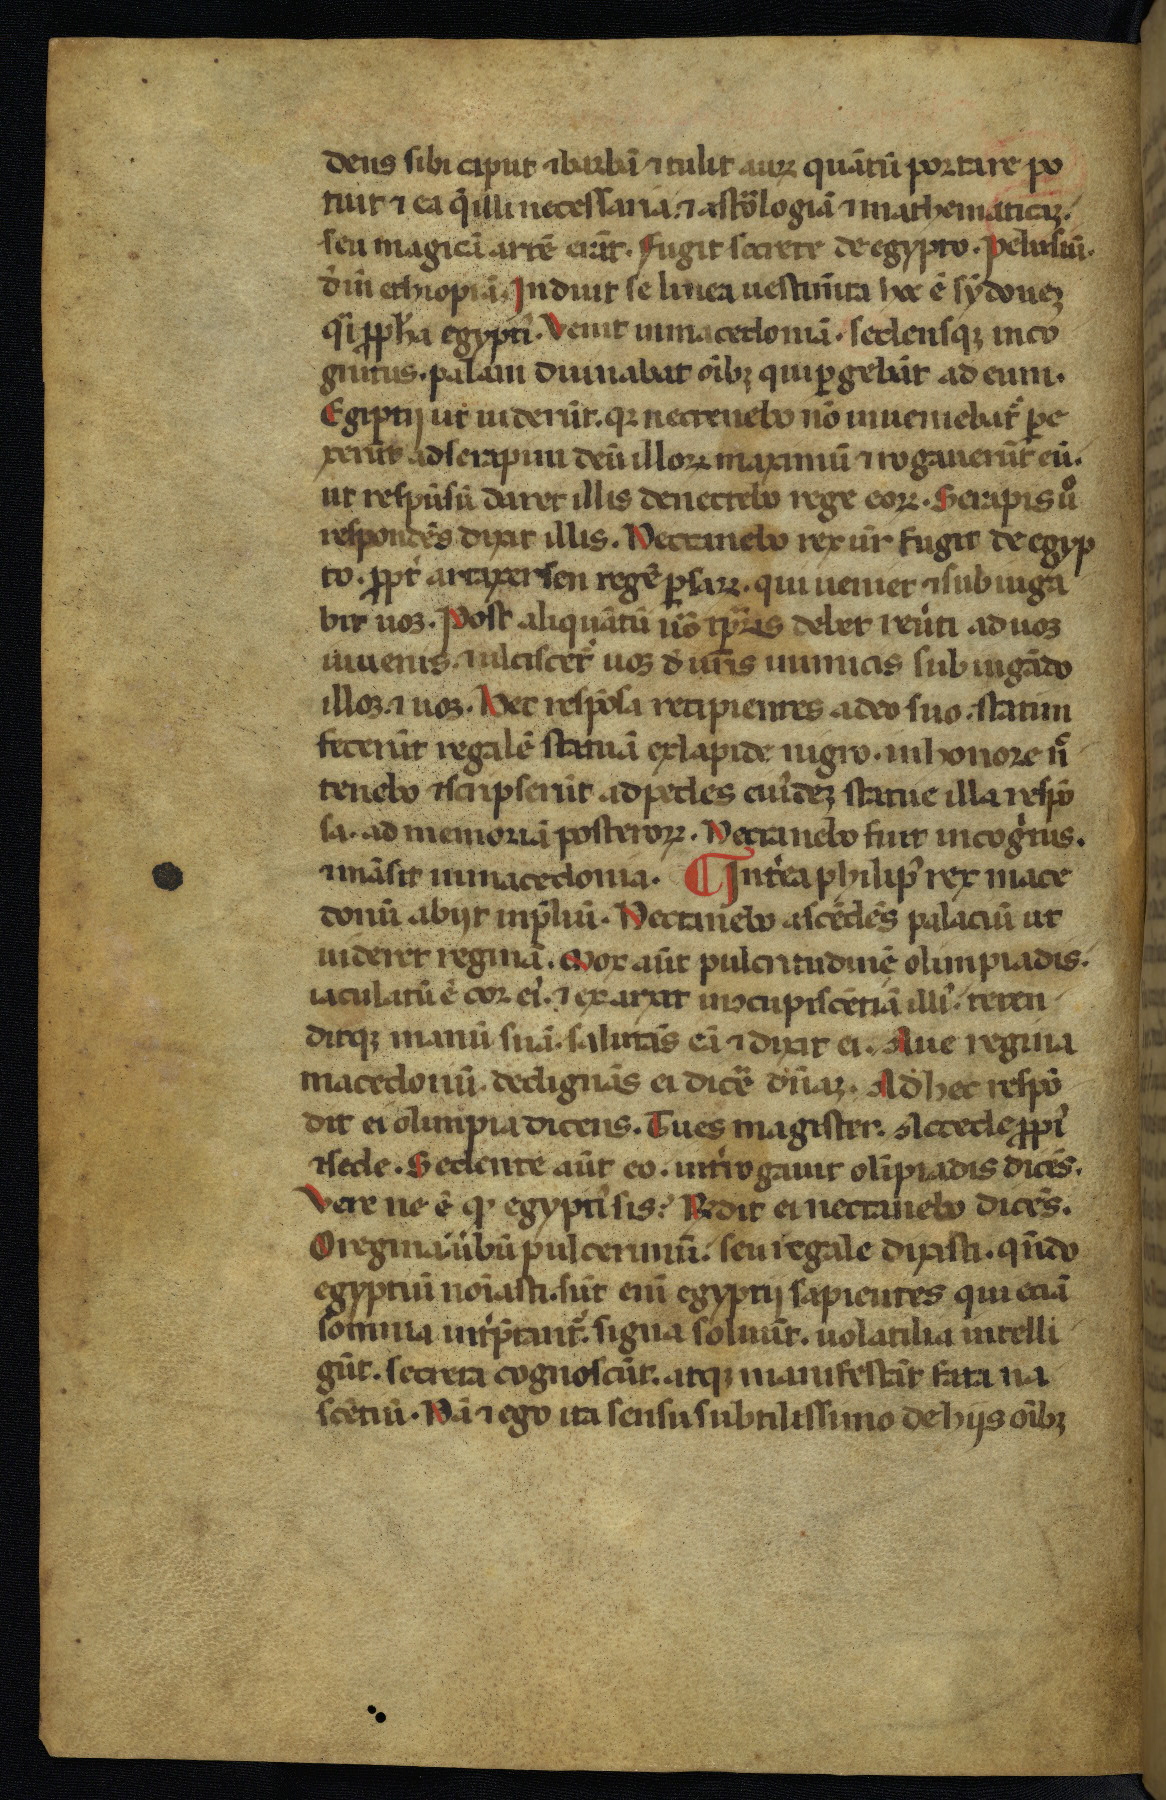 dens sibi caput ⁊ barbā ⁊ tulit auꝝ quātū portare po
tuit ⁊ ea q̄ illi necessaria. ⁊ astrͦlogiā ⁊ mathematicaꝫ.
seu magicā artē erāt. Fugit secrete de egypto. Pelusiū.
dīn ethiopiā. Induit se linea uestimīta hoc ē sydoneꝫ
q̄i ꝓpħa egypti᾽. Venit in macedoniā. sedensqꝫ inco
gnitus. palam diuinabat oībꝫ qui ꝑgebāt ad eum.
Egiptij ut uiderūt. qꝫ nectenebo nō inueniebat᷑ pe
xerūt ad serapim deū illoꝝ maximū ⁊ rogauerūt eū.
ut respūsū daret illis de nectebo rege eoꝝ. Serapis uͦ
respondēs dixit illis. Nectanebo rex ūr fugit de egyp
to. ꝓpt᾽ artaxersen regē ꝑsaꝝ. qui ueniet ⁊ subiuga
bit uoꝫ. Post aliquātū uͦ tꝑis debet reūti ad uoꝫ
iuuenis. ⁊ ulciscet᷑ uoꝫ d᾽ uīis inimicis subiugādo
illoꝫ. ⁊ uoꝫ. Hec respōsa recipientes a deo suo. statim
fecerūt regalē statuā ex lapide nigro. in honore n̄c
tenebo ⁊ scripserūt ad pedes eiu᾽deꝫ statue illa respō
sa. ad memoriā posteroꝝ. Nectanebo fuit incog᾽tus.
⁊ māsit in macedonia. ¶ Int᾽ea philip᾽ rex mace
donū abijt in p̄liū. Nectanebo ascēdēs palaciū ut
uideret reginā. Mox aūt pulcritudinē olimpiadis.
iaculatū ē cor ei᾽. ⁊ exarxit in cupiscētiā illi᾽. teten
ditqꝫ manū suā. salutās eā ⁊ dixit ei. Aue regina
macedonū. dedignās ei dicē dn̄aꝫ. Ad hec respō
dit ei olimpia dicens. Tu es magister. Accede ꝓpi᾽
⁊ sede. Sedente aūt eo. int᾽rogauit olīpiadis dicēs.
Vere ne ē qꝫ egypti᾽ sis? Rñdit ei nectanebo dicēs.
O regina. ūbū pulcerimū. seu regale dixisti. qn̄do
egyptiū noīasti. sūt enī egyptij sapientes qui eciā
somnia int᾽p̄tant᷑. signa soluūt. uolatilia intelli
gūt. secreta cognoscūt. atqꝫ manifestāt fata na
scētiū. Nā ⁊ ego ita sensu subtilissimo de hijs oībꝫ